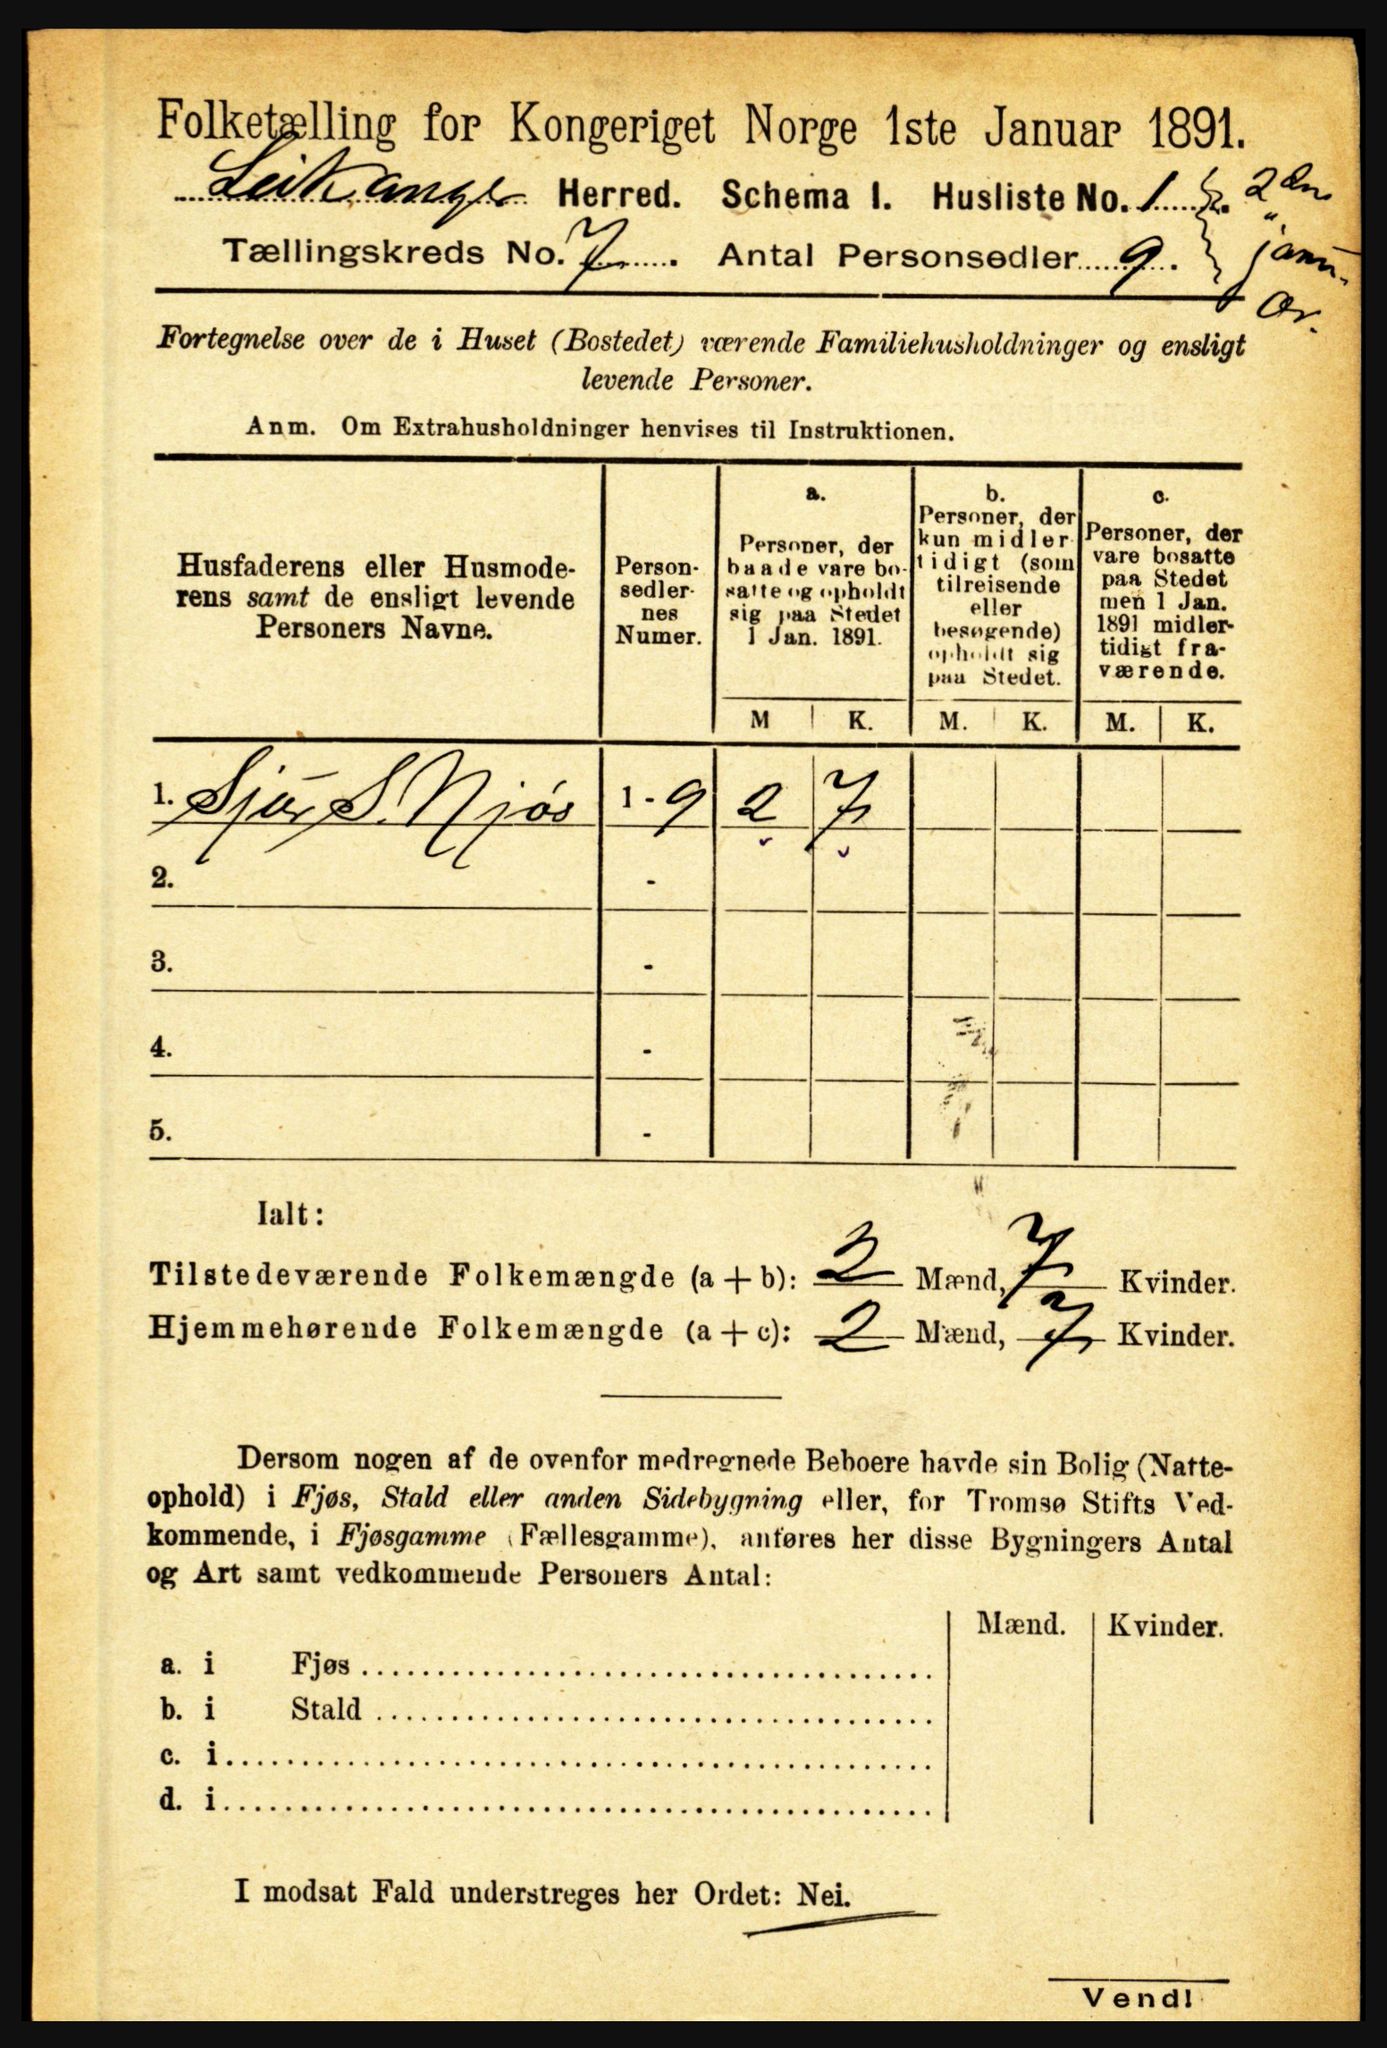 Folketælling for Kongeriget Norge 1ste Januar 1891.
Leikanger Herred. Schema I. Husliste No. 1. 2den
Tællingskreds No. 7. Antal Personsedler 9. janu-
ar.
Fortegnelse over de i Huset (Bostedet) værende Familiehusholdninger og ensligt
levende Personer.
Anm. Om Extrahusholdninger henvises til Instruktionen.
Husfaderens eller Husmode-
rens samt de ensligt levende
Personers Navne.
Person-
sedler-
nes
Numer.
a.
Personer, der
baade vare bo-
satte og opholdt
sig paa Stedet
1 Jan. 1891.
b.
Personer, der
kun midler
tidigt (som
tilreisende
eller
besøgende)
opholdt sig
paa Stedet.
c.
Personer, der
vare bosatte
paa Stedet
men 1 Jan.
1891 midler-
tidigt fra-
værende.
M K. M. K. M. K.
1. Sjur S. Njøs 1 - 9 2 7
2. -
3. -
4. -
5. -
Ialt:
Tilstedeværende Folkemængde (a + b): 2 Mænd, 7 Kvinder.
Hjemmehørende Folkemængde (a + c): 2 Mænd, 7 Kvinder.
Dersom nogen af de ovenfor medregnede Beboere havde sin Bolig (Natte-
ophold) i Fjøs, Stald eller anden Sidebygning eller, for Tromsø Stifts Ved-
kommende, i Fjøsgamme (Fællesgamme), anføres her disse Bygningers Antal
og Art samt vedkommende Personers Antal:
Mænd. Kvinder.
a. i Fjøs
b. i Stald
c. i
d. i
I modsat Fald understreges her Ordet: Nei.
Vend!